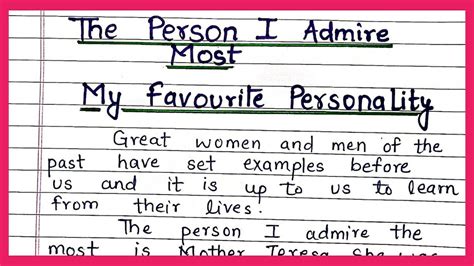 The Person I Admire
Most
My Favourite Personality
Great women and men of the
past have set examples before
us and it is up to us to learn
from their lives.
The person I admire the
most is Mother Teresa She was